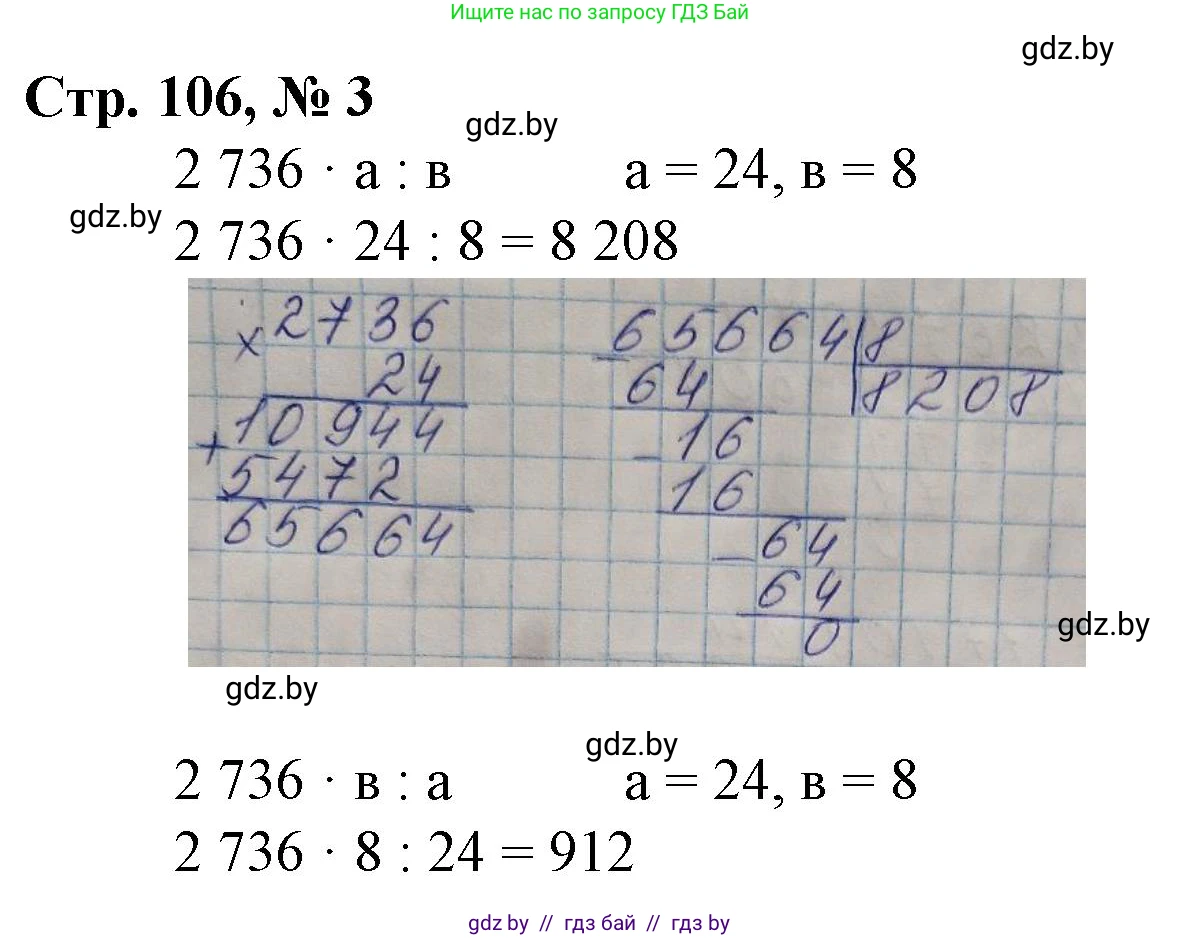 Ищите нас по запросу ГДЗ Бай
gdz.by
Стр. 106, № 3
gdz.by
2 736 · а : в a = 24, в = 8
gdz.by
2 736 · 24 : 8 = 8 208
× 2736
24
+ 10944
5472
65664
– 65664 | 8
64 8208
– 16
16
– 64
64
0
gdz.by
gdz.by
gdz.by
2 736 · в : а a = 24, в = 8
2 736 · 8 : 24 = 912
gdz by // гдз бай // гдз by